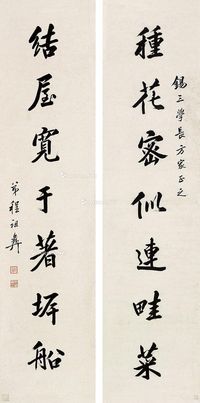 種花密似連畦菜
錫三學長方家正之
結屋寬于著垿船
弟程祖彝